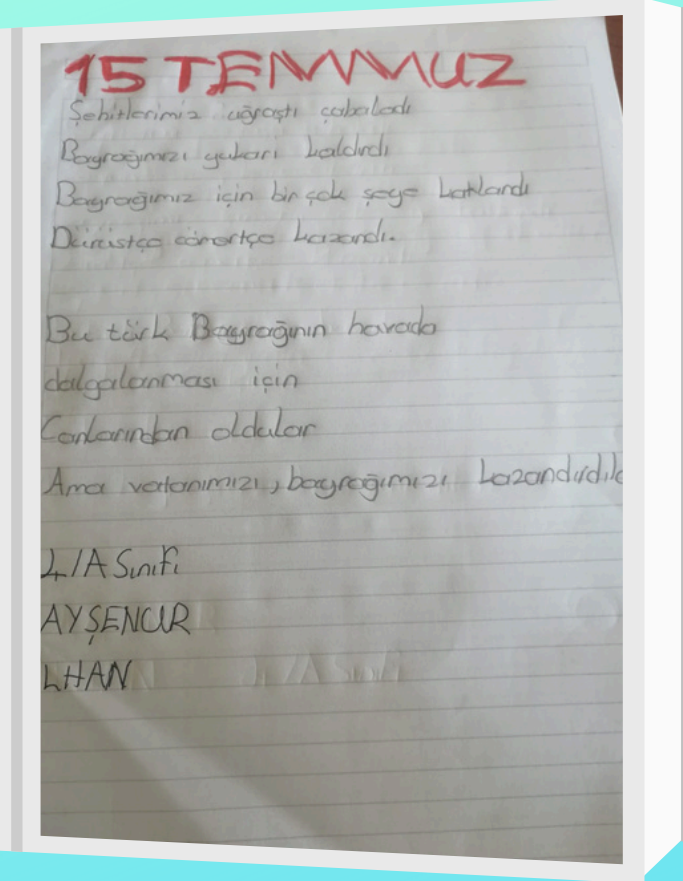 15 TEMMUZ
Şehitlerimiz uğraştı çabaladı
Bayrağımızı yukarı kaldırdı
Bayrağımız için bir çok şeye katlandı
Dürüstçe cömertçe kazandı.
Bu türk Bayrağının havada
dalgalanması için
Canlarından oldular
Ama vatanımızı, bayrağımızı kazandırdıla
4/A Sınıfı
AYŞENUR
LHAN